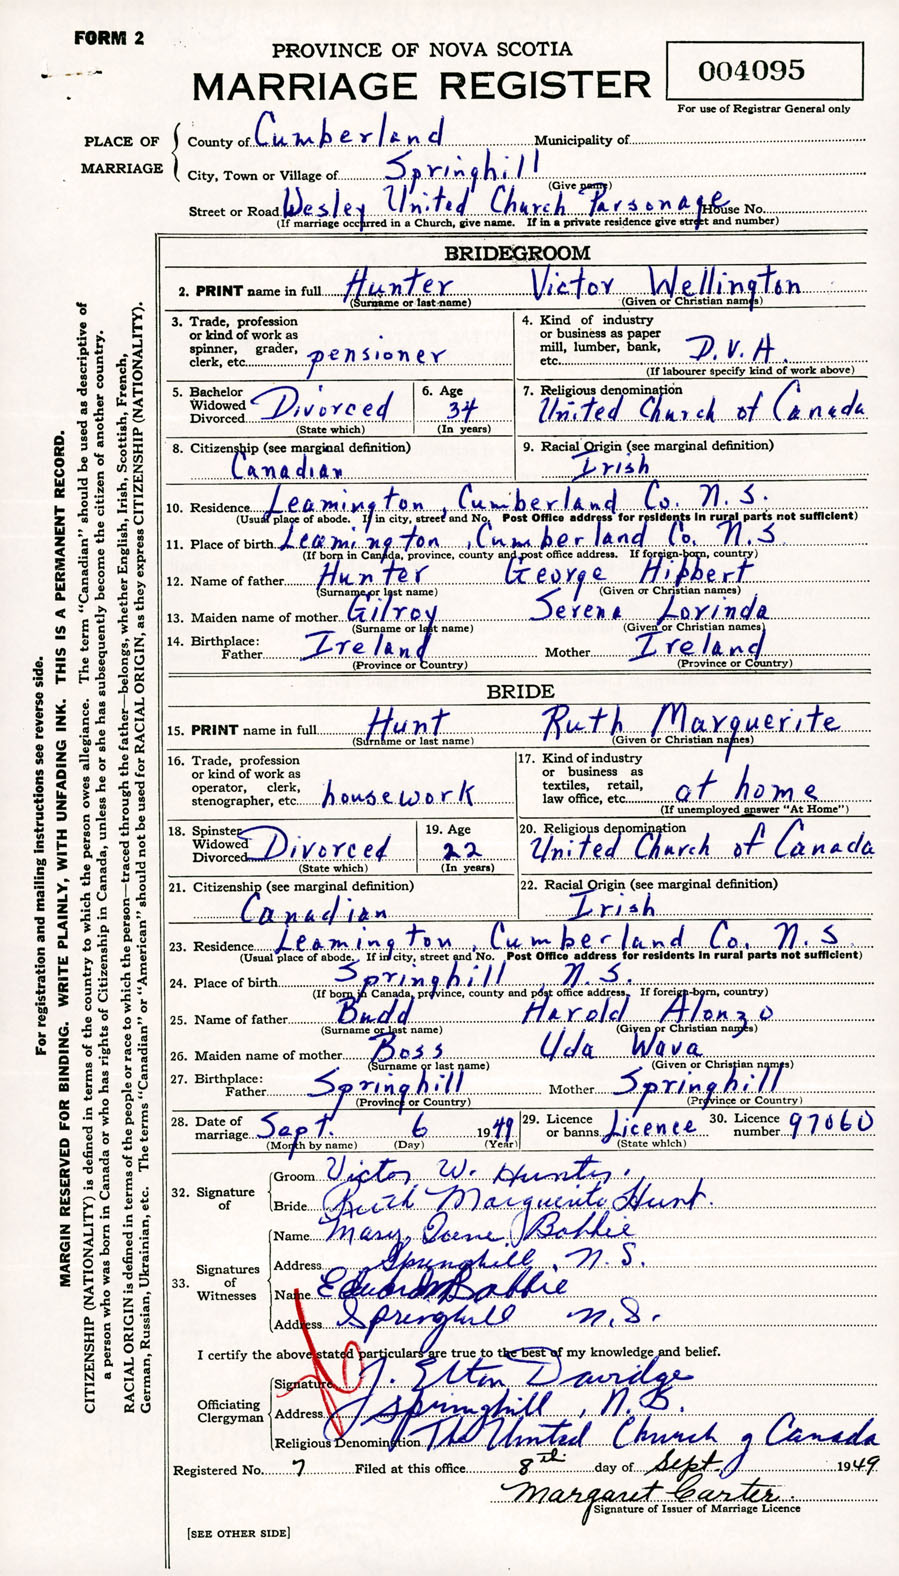 FORM 2
PROVINCE OF NOVA SCOTIA
MARRIAGE REGISTER
004095
For use of Registrar General only
PLACE OF MARRIAGE
County of Cumberland Municipality of
City, Town or Village of Springhill
(Give name)
Street or Road Wesley United Church Parsonage House No.
(If marriage occurred in a Church, give name. If in a private residence give street and number)
BRIDEGROOM
2. PRINT name in full Hunter Victor Wellington
(Surname or last name) (Given or Christian names)
3. Trade, profession or kind of work as spinner, grader, clerk, etc. pensioner
4. Kind of industry or business as paper mill, lumber, bank, etc. D.V.A.
(If labourer specify kind of work above)
5. Bachelor Widowed Divorced Divorced
(State which)
6. Age 34
(In years)
7. Religious denomination
United Church of Canada
8. Citizenship (see marginal definition)
Canadian
9. Racial Origin (see marginal definition)
Irish
10. Residence Leamington, Cumberland Co. N.S.
(Usual place of abode. If in city, street and No. Post Office address for residents in rural parts not sufficient)
11. Place of birth Leamington, Cumberland Co. N.S.
(If born in Canada, province, county and post office address. If foreign-born, country)
12. Name of father Hunter George Hibbert
(Surname or last name) (Given or Christian names)
13. Maiden name of mother Gilroy Serena Lorinda
(Surname or last name) (Given or Christian names)
14. Birthplace:
Father Ireland Mother Ireland
(Province or Country) (Province or Country)
BRIDE
15. PRINT name in full Hunt Ruth Marguerite
(Surname or last name) (Given or Christian names)
16. Trade, profession or kind of work as operator, clerk, stenographer, etc. housework
17. Kind of industry or business as textiles, retail, law office, etc. at home
(If unemployed answer "At Home")
18. Spinster Widowed Divorced Divorced
(State which)
19. Age 22
(In years)
20. Religious denomination
United Church of Canada
21. Citizenship (see marginal definition)
Canadian
22. Racial Origin (see marginal definition)
Irish
23. Residence Leamington, Cumberland Co. N.S
(Usual place of abode. If in city, street and No. Post Office address for residents in rural parts not sufficient)
24. Place of birth Springhill, N.S.
(If born in Canada, province, county and post office address. If foreign-born, country)
25. Name of father Budd Harold Alonzo
(Surname or last name) (Given or Christian names)
26. Maiden name of mother Boss Uda Wava
(Surname or last name) (Given or Christian names)
27. Birthplace:
Father Springhill Mother Springhill
(Province or Country) (Province or Country)
28. Date of marriage Sept. 6 1949
(Month by name) (Day) (Year)
29. Licence or banns Licence
(State which)
30. Licence number 97060
32. Signature of
Groom Victor W. Hunter.
Bride Ruth Marguerite Hunt.
33. Signatures of Witnesses
Name Mary Babbie
Address Springhill, N.S.
Name Edward Babbie
Address Springhill N.S.
I certify the above stated particulars are true to the best of my knowledge and belief.
Officiating Clergyman
Signature J. Elton Davidge
Address Springhill, N.S.
Religious Denomination The United Church of Canada
Registered No. 7 Filed at this office 8th day of Sept. 1949
Margaret Carter.
Signature of Issuer of Marriage Licence
[SEE OTHER SIDE]
For registration and mailing instructions see reverse side.
MARGIN RESERVED FOR BINDING. WRITE PLAINLY, WITH UNFADING INK. THIS IS A PERMANENT RECORD.
CITIZENSHIP (NATIONALITY) is defined in terms of the country to which the person owes allegiance. The term "Canadian" should be used as descriptive of
a person who was born in Canada or who has rights of Citizenship in Canada, unless he or she has subsequently become the citizen of another country.
RACIAL ORIGIN is defined in terms of the people or race to which the person—traced through the father—belongs, whether English, Irish, Scottish, French,
German, Russian, Ukrainian, etc. The terms "Canadian" or "American" should not be used for RACIAL ORIGIN, as they express CITIZENSHIP (NATIONALITY).